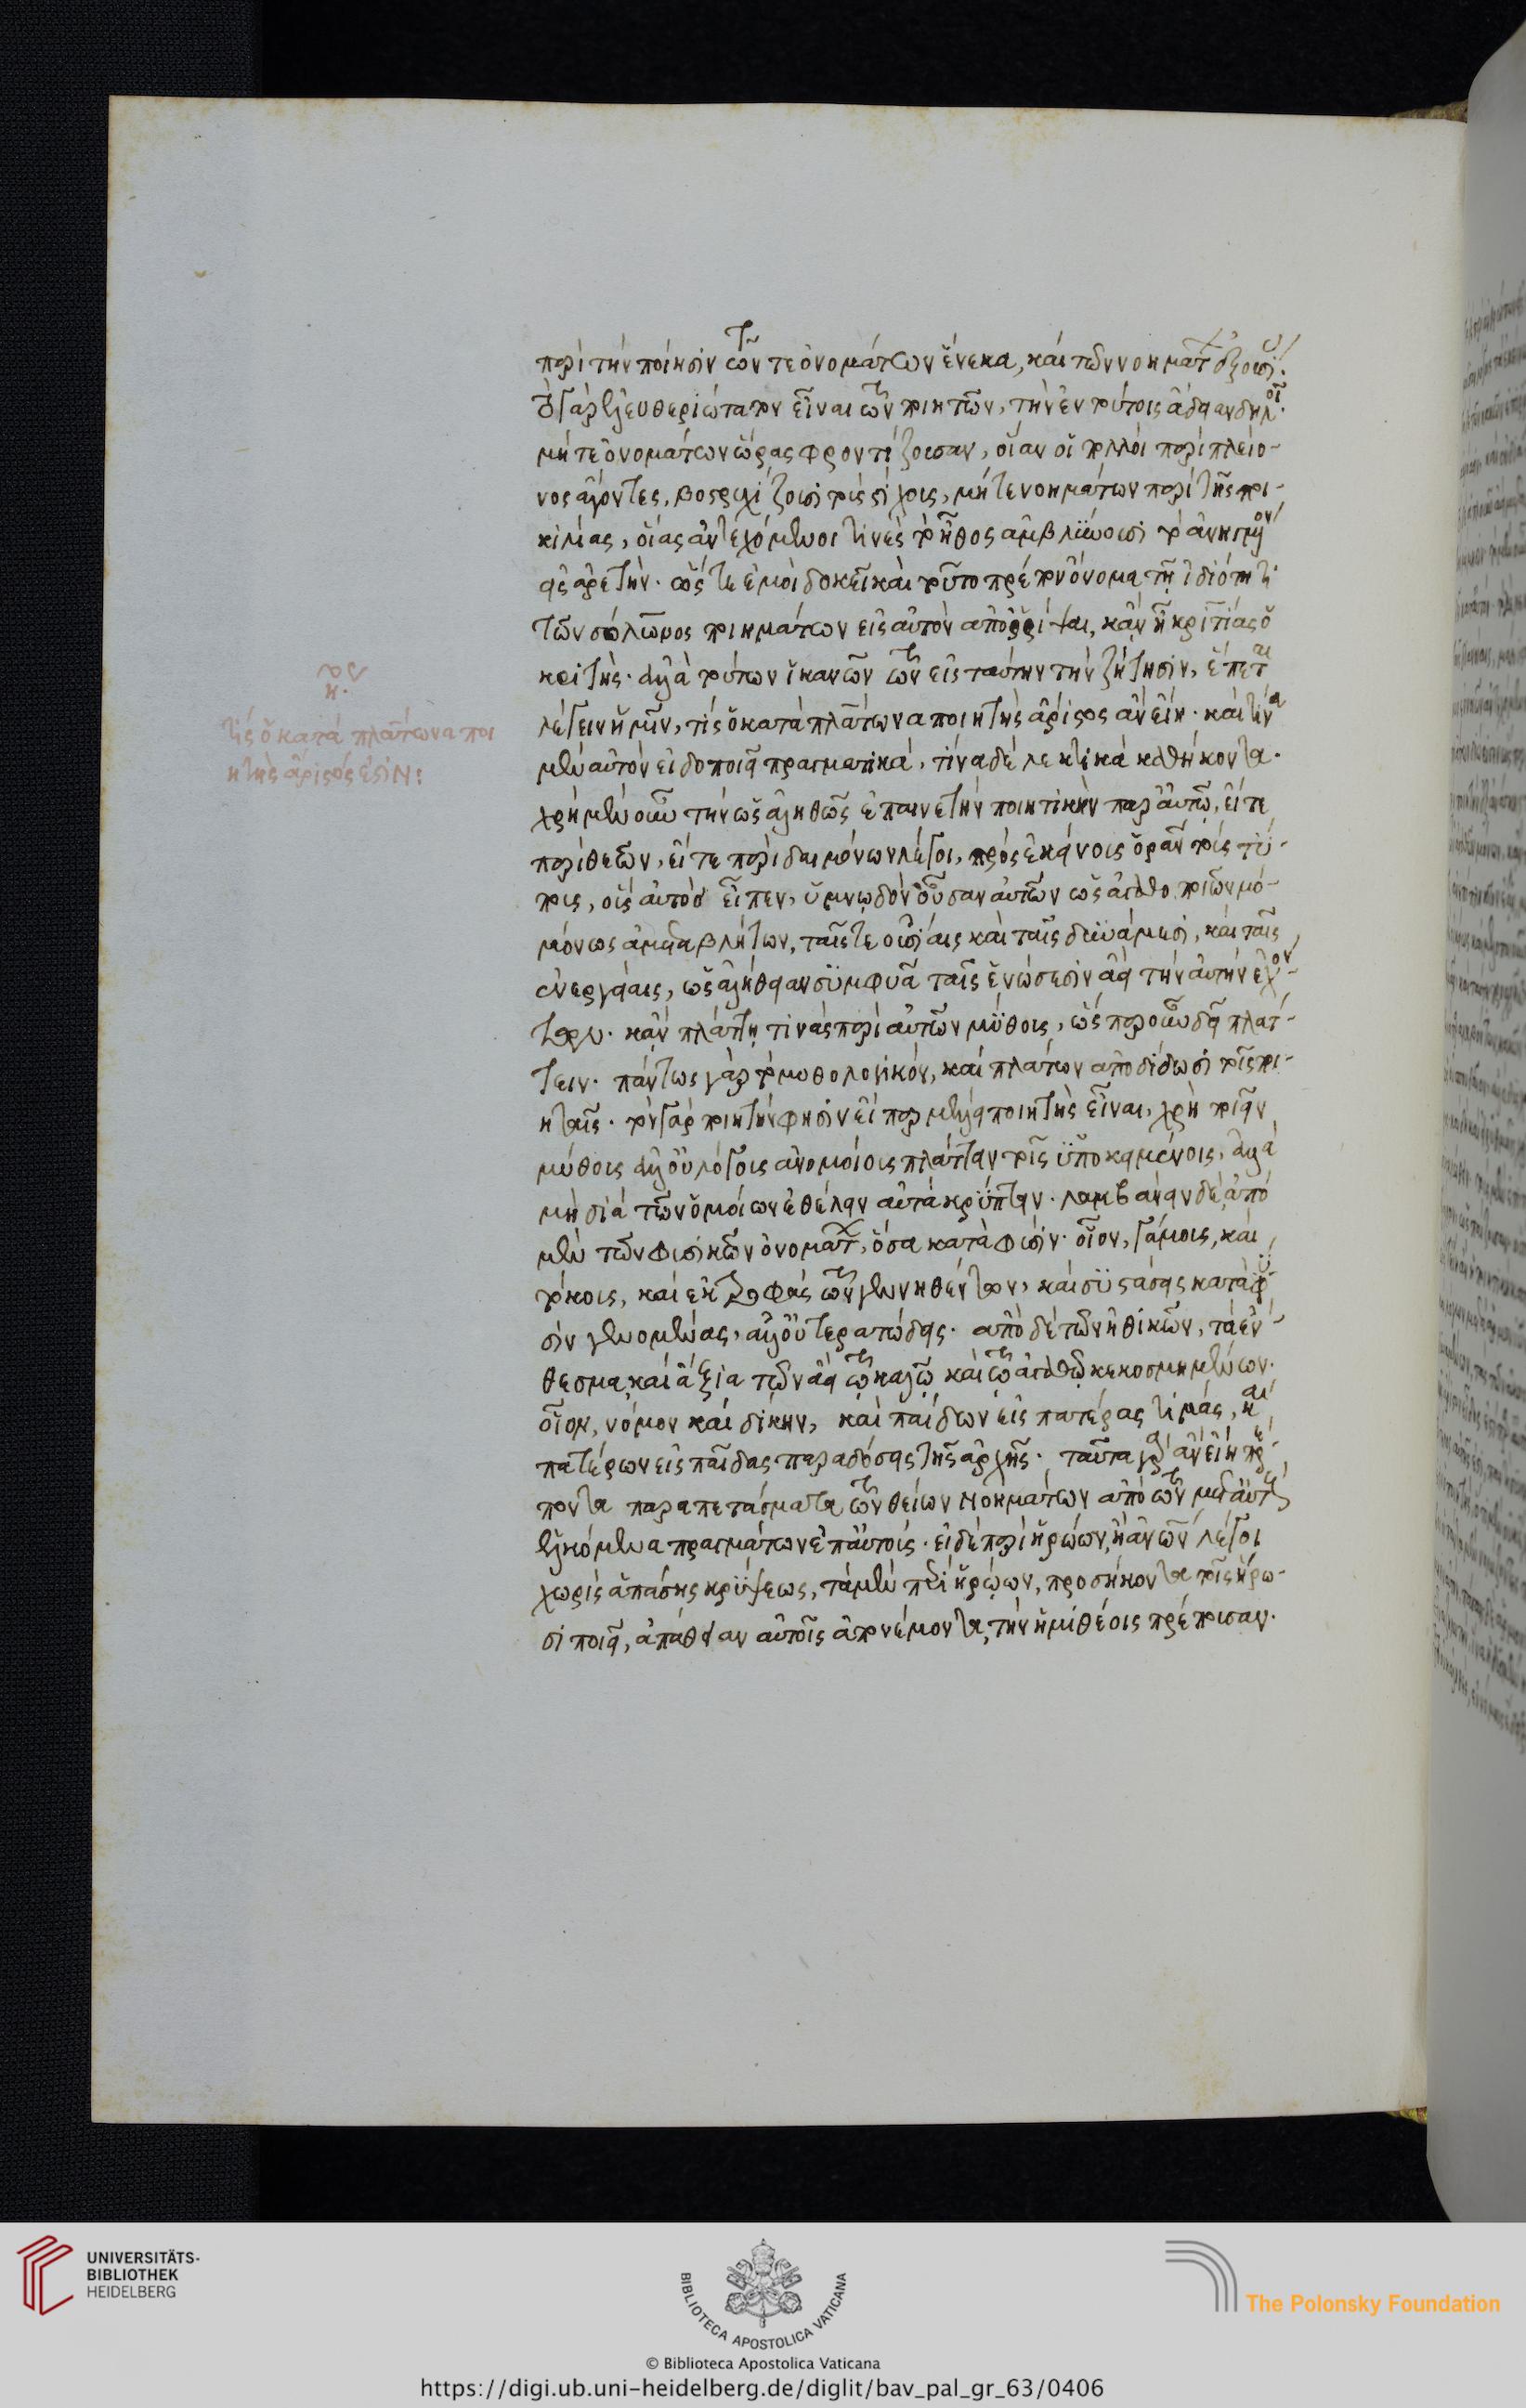 περὶ τὴν ποίησιν τῶν τε ὀνομάτων ἕνεκα, καὶ τῶν νοημάτων
τὸ γὰρ ἐλευθεριώτατον εἶναι τῶν ποιητῶν, τὴν ἐν τούτοις ἄδειαν δηλοῖ
μήτε ὀνομάτων ὥρας φροντίζουσαν, οἵαν οἱ πολλοὶ περὶ πλείο-
νος ἄγοντες, βοστρυχίζουσι τοὺς στίχους, μήτε νοημάτων περὶ τῆς ποι-
κιλίας, οἵας ἀντεχόμενοι τινὲς τὸ ἦθος ἀμβλύουσι τὸ ἀνηγμένον
εἰς ἀρετήν. ὥστε ἐμοὶ δοκεῖ καὶ τοῦτο πρέπον ὄνομα τῇ ἰδιότητι
τῶν σόλωνος ποιημάτων εἰς αὐτὸν ἀπορρίψαι, κἂν ᾖ κριτίας ὁ
κριτής. ἀλλὰ τούτων ἱκανῶν ὄντων εἰς ταύτην τὴν ζήτησιν, ἕπεται
λέγειν ἡμῖν, τίς ὁ κατὰ πλάτωνα ποιητὴς ἄριστος ἂν εἴη. καὶ τίνα
μὲν αὐτὸν εἰδοποιεῖ πραγματικά, τίνα δὲ λεκτικὰ καθήκοντα.
χρὴ μὲν οὖν τὴν ὡς ἀληθῶς ἐπαινετὴν ποιητικὴν παρ' αὐτῷ, εἴτε
περὶ θεῶν, εἴτε περὶ δαιμόνων λέγοι, πρὸς ἐκείνους ὁρᾶν τοὺς τύ-
πους, οὓς αὐτὸς εἶπεν, ὑμνῳδὸν οὖσαν αὐτῶν ὡς ἀγαθοποιῶν μό-
μόνως ἀμεταβλήτων, ταῖς τε οὐσίαις καὶ ταῖς δυνάμεσι, καὶ ταῖς
ἐνεργείαις, ὡς ἀλήθειαν συμφυᾶ ταῖς ἑνώσεσιν ἀεὶ τὴν αὐτὴν ἐχόν-
των. κἂν πλάττῃ τινὰς περὶ αὐτῶν μύθους, ὡς
τειν. πάντως γὰρ τὸ μυθολογικόν, καὶ πλάτων ἀποδίδωσι τοῖς ποι-
ηταῖς. τὸν γὰρ ποιητήν φησιν εἴπερ μέλλει ποιητὴς εἶναι, χρὴ ποιεῖν
μύθους ἀλλ' οὐ λόγους ἀνομοίοις πλάττειν τοῖς ὑποκειμένοις, ἀλλὰ
μὴ διὰ τῶν ὁμοίων ἐθέλειν αὐτὰ κρύπτειν. λαμβάνειν δὲ, ἀπὸ
μὲν τῶν φυσικῶν ὀνομάτων, ὅσα κατὰ φύσιν. οἷον, γάμους, καὶ
τόκους, καὶ ἐκτροφὰς τῶν γεννηθέντων, καὶ συστάσεις κατὰ φύ-
σιν γενομένας, ἀλλ' οὐ τερατώδεις. ἀπὸ δὲ τῶν ἠθικῶν, τὰ ἔν-
θεσμα, καὶ ἄξια τῶν ἀεὶ τῷ καλῷ καὶ τῷ ἀγαθῷ κεκοσμημένων.
οἷον, νόμον καὶ δίκην, καὶ παίδων εἰς πατέρας τιμάς, καὶ
πατέρων εἰς παῖδας παραδόσεις τῆς ἀρχῆς. ταῦτα γὰρ ἂν εἴη πρέ-
ποντα παραπετάσματα τῶν θείων νοημάτων ἀπὸ τῶν μετ' αὐτοὺς
ἑλκόμενα πραγμάτων ἐπ' αὐτούς. εἰ δὲ περὶ ἡρώων, ἢ ἀνθρώπων λέγοι
χωρὶς ἁπάσης κρύψεως, τὰ μὲν περὶ ἡρώων, προσήκοντα τοῖς ἥρω-
σι ποιεῖ, ἀπάθειαν αὐτοῖς ἀπονέμοντα, τὴν ἡμιθέοις πρέπουσαν.
τίς ὁ κατὰ πλάτωνα ποι
ητὴς ἄριστός ἐστιν:
UNIVERSITÄTS-
BIBLIOTHEK
HEIDELBERG
BIBLIOTECA APOSTOLICA VATICANA
The Polonsky Foundation
© Biblioteca Apostolica Vaticana
https://digi.ub.uni-heidelberg.de/diglit/bav_pal_gr_63/0406